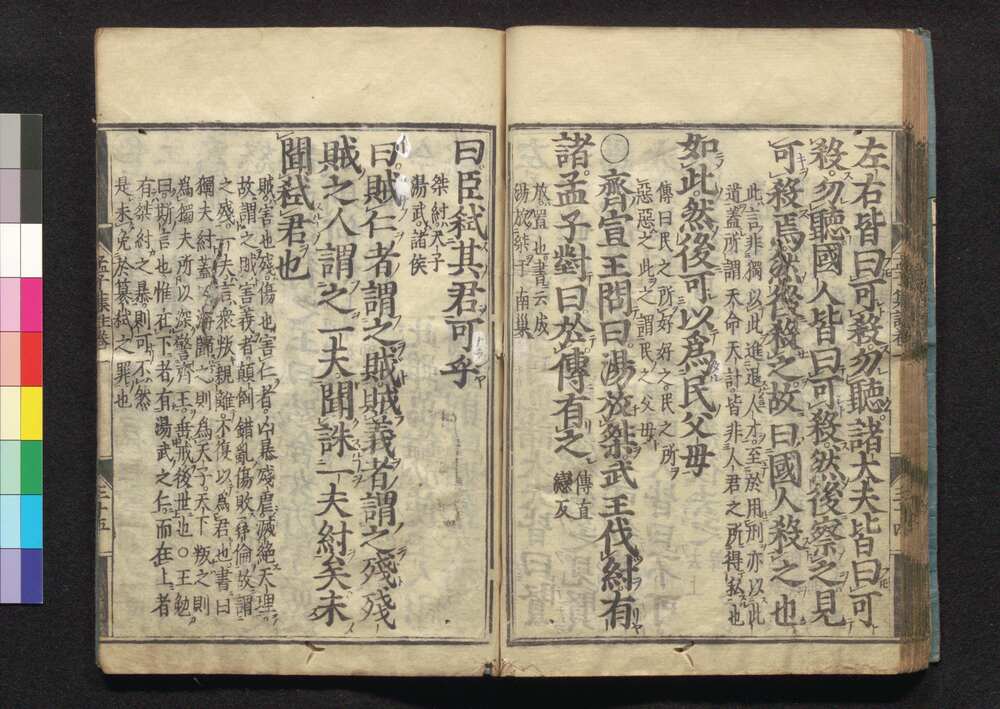 左右皆曰可殺勿聽諸大夫皆曰可
殺勿聽國人皆曰可殺然後察之見
可殺焉然後殺之故曰國人殺之也
此言非獨以此進退人才至於用刑亦以此
道蓋所謂天命天討皆非人君之所得私也
如此然後可以爲民父母
傳曰民之所好好之民之所
惡惡之此之謂民之父母
○齊宣王問曰湯放桀武王伐紂有
諸孟子對曰於傳有之
傳直
戀反
放置也書云成
湯放桀于南巢
曰臣弑其君可乎
桀紂天子
湯武諸侯
曰賊仁者謂之賊賊義者謂之殘殘
賊之人謂之一夫聞誅一夫紂矣未
聞弑君也
賊害也殘傷也害仁者凶暴殘虐滅絕天理
故謂之賊害義者顛倒錯亂傷敗彝倫故謂
之殘一夫言衆叛親離不復以爲君也書曰
獨夫紂蓋四海歸之則為天子天下叛之則
爲獨夫所以深警齊王垂戒後世也○王勉
曰斯言也惟在下者有湯武之仁而在上者
有桀紂之暴則可不然
是未免於篡弑之罪也
孟子集註卷一
三十四
孟子集註卷一
三十五